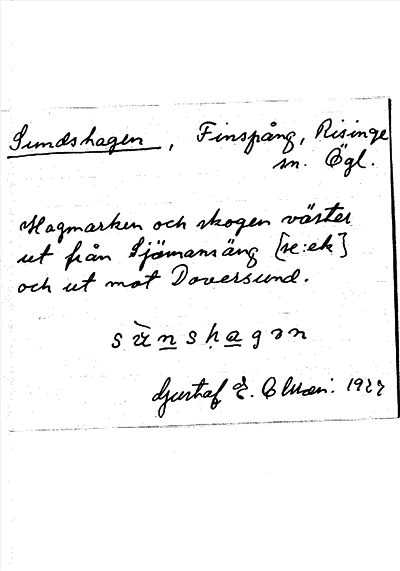 Sundshagen, Finspång, Risinge
sn. Ögl.
Hagmarken och skogen väster
ut från Sjömansäng [se: ek]
och ut mot Doversund.
Gustaf E. 1927